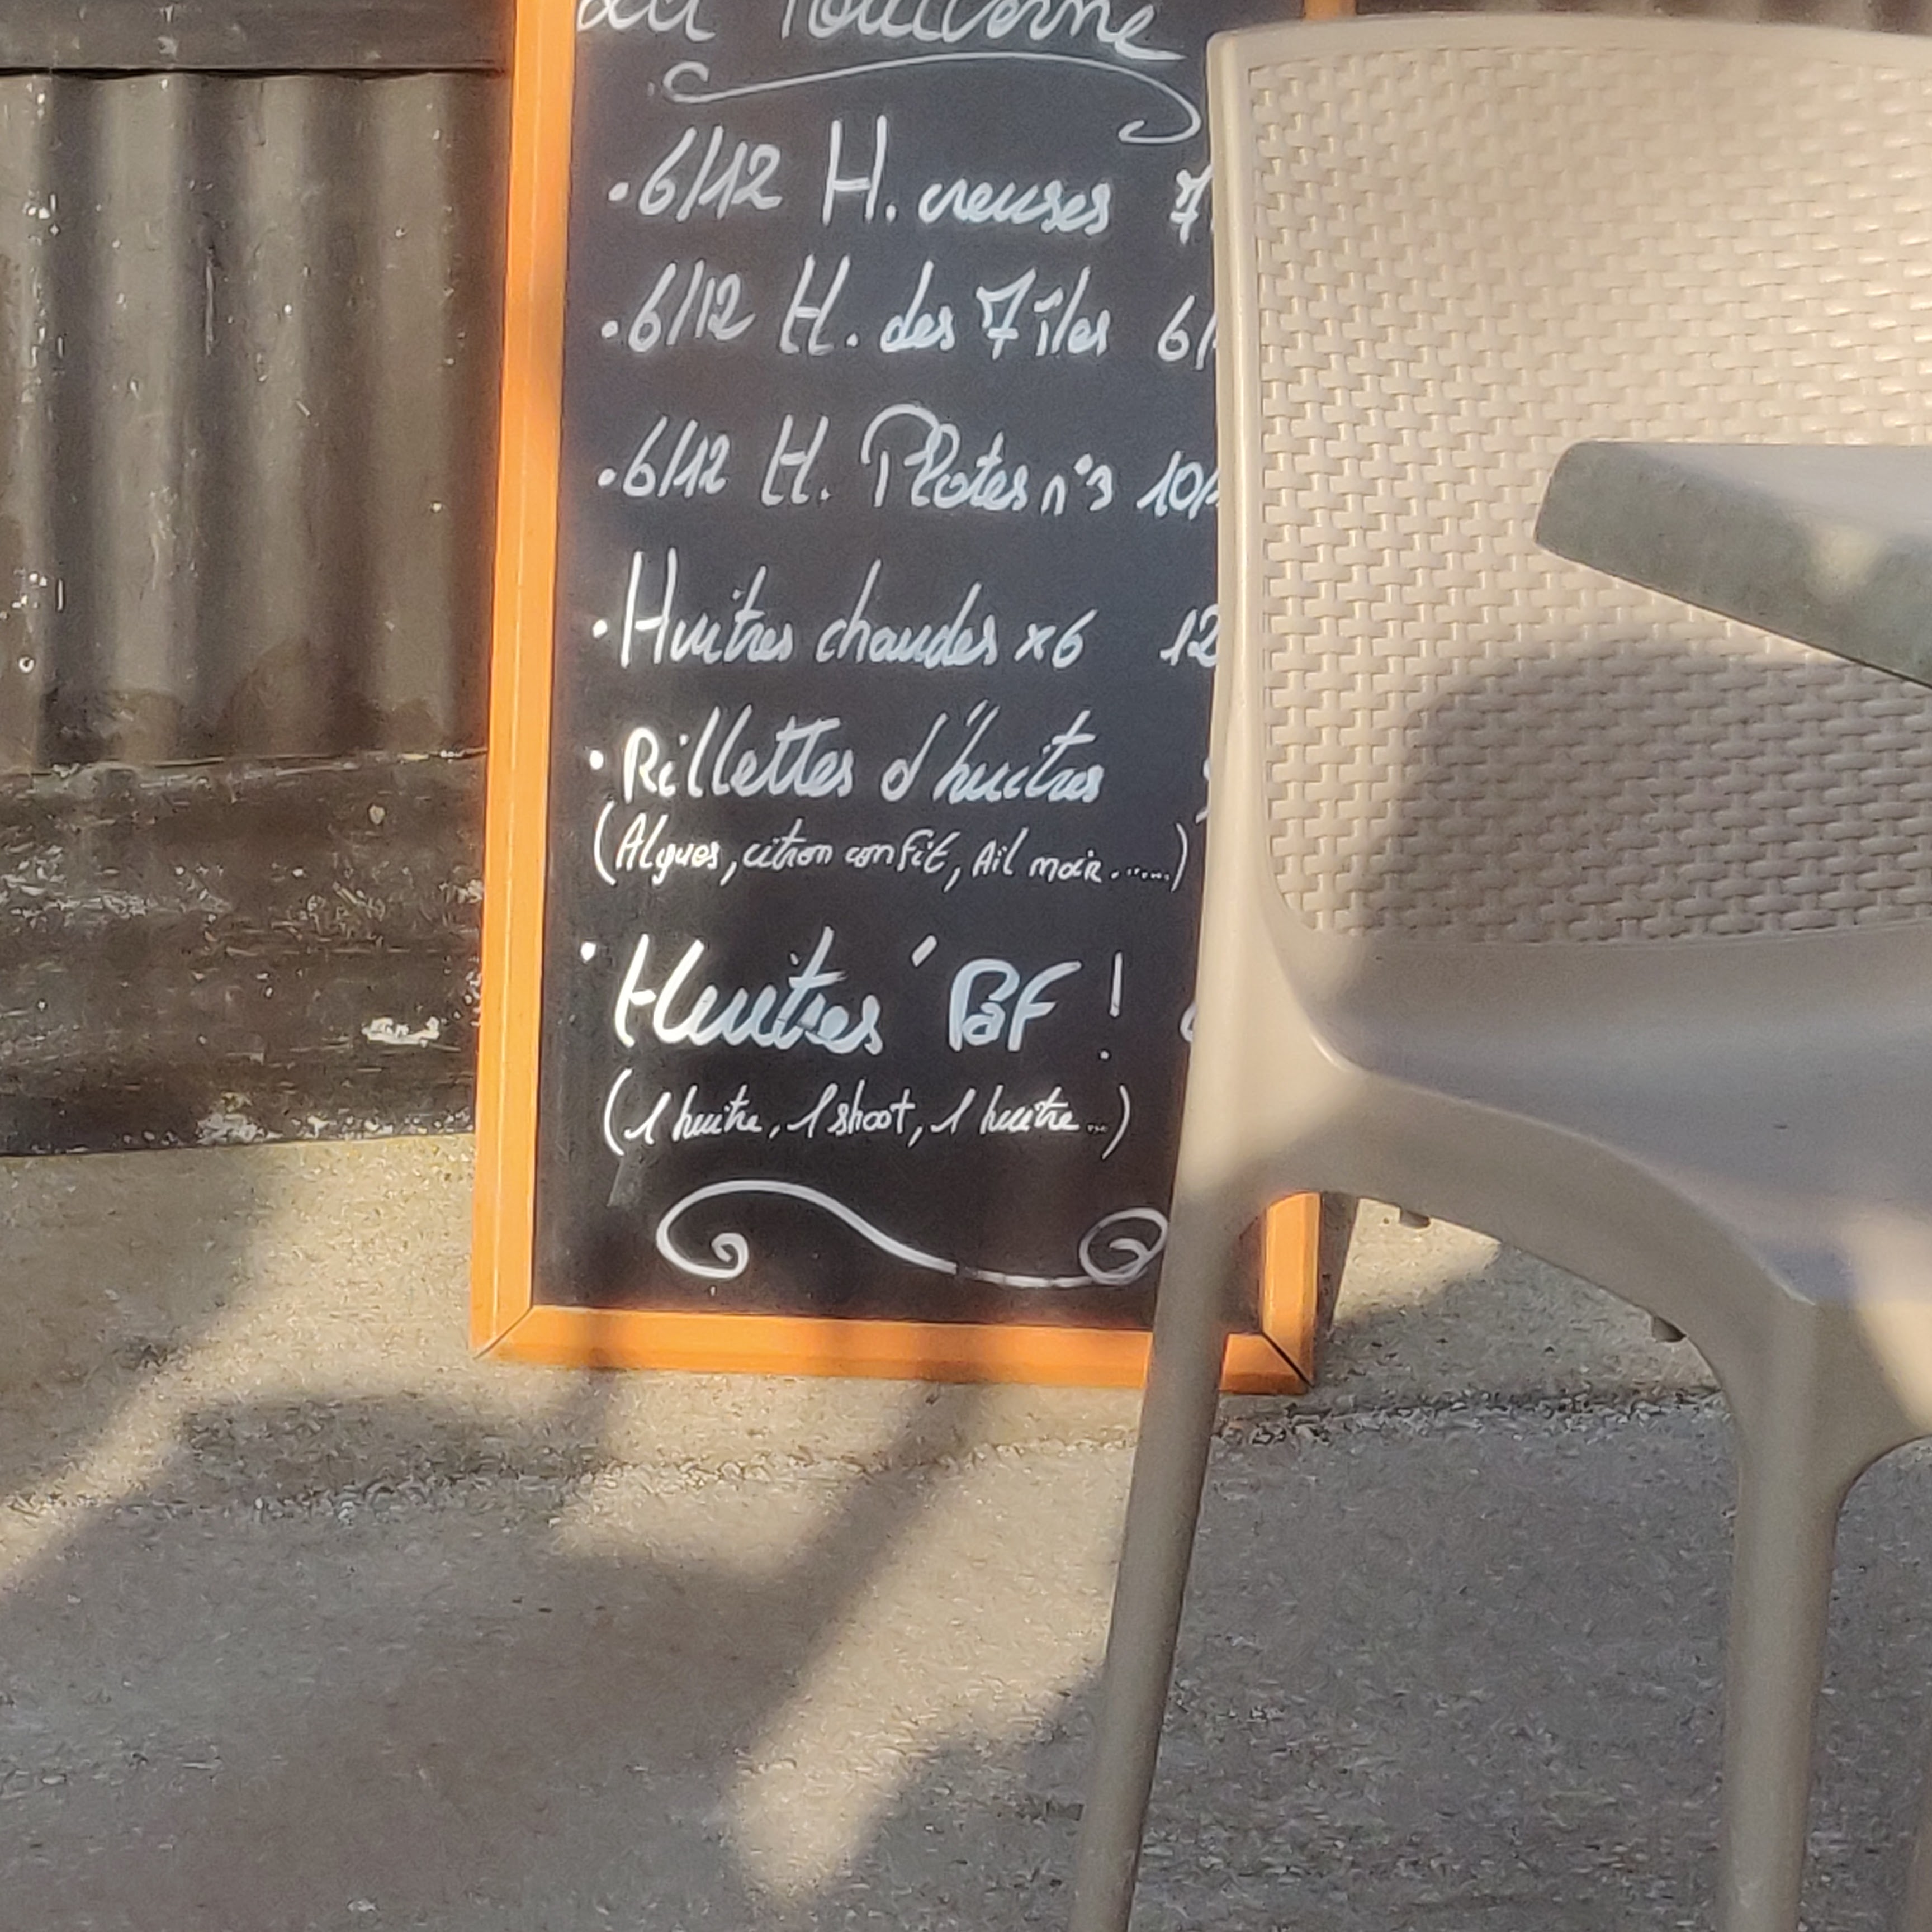 .6/12 H. creuses 7
.6/12 H. des 7 îles 6/
.6/12 H. Plates n°3 10/
.Huîtres chaudes x6 12
.Rillettes d'huîtres
(Algues, citron confit, Ail noir.......)
.Huîtres PAF !
(1 huître, 1 shoot, 1 huître...)